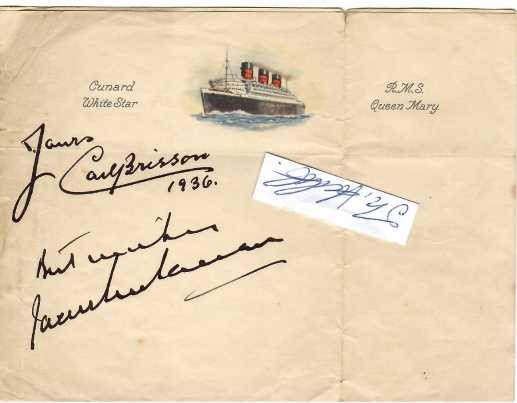 Cunard
White Star
R.M.S.
Queen Mary
Yours
Carl Brisson
1936.
Best wishes